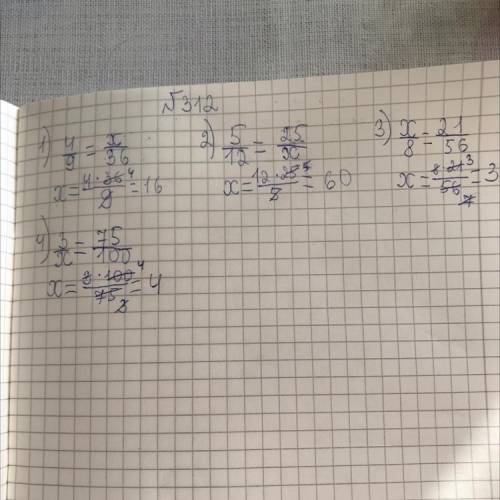 №312
1) 4/9 = x/36
x = 4·36/9 = 16
2) 5/12 = 25/x
x = 12·25/5 = 60
3) x/8 = 21/56
x = 8·21/56 = 3
4) 3/x = 75/100
x = 3·100/75 = 4